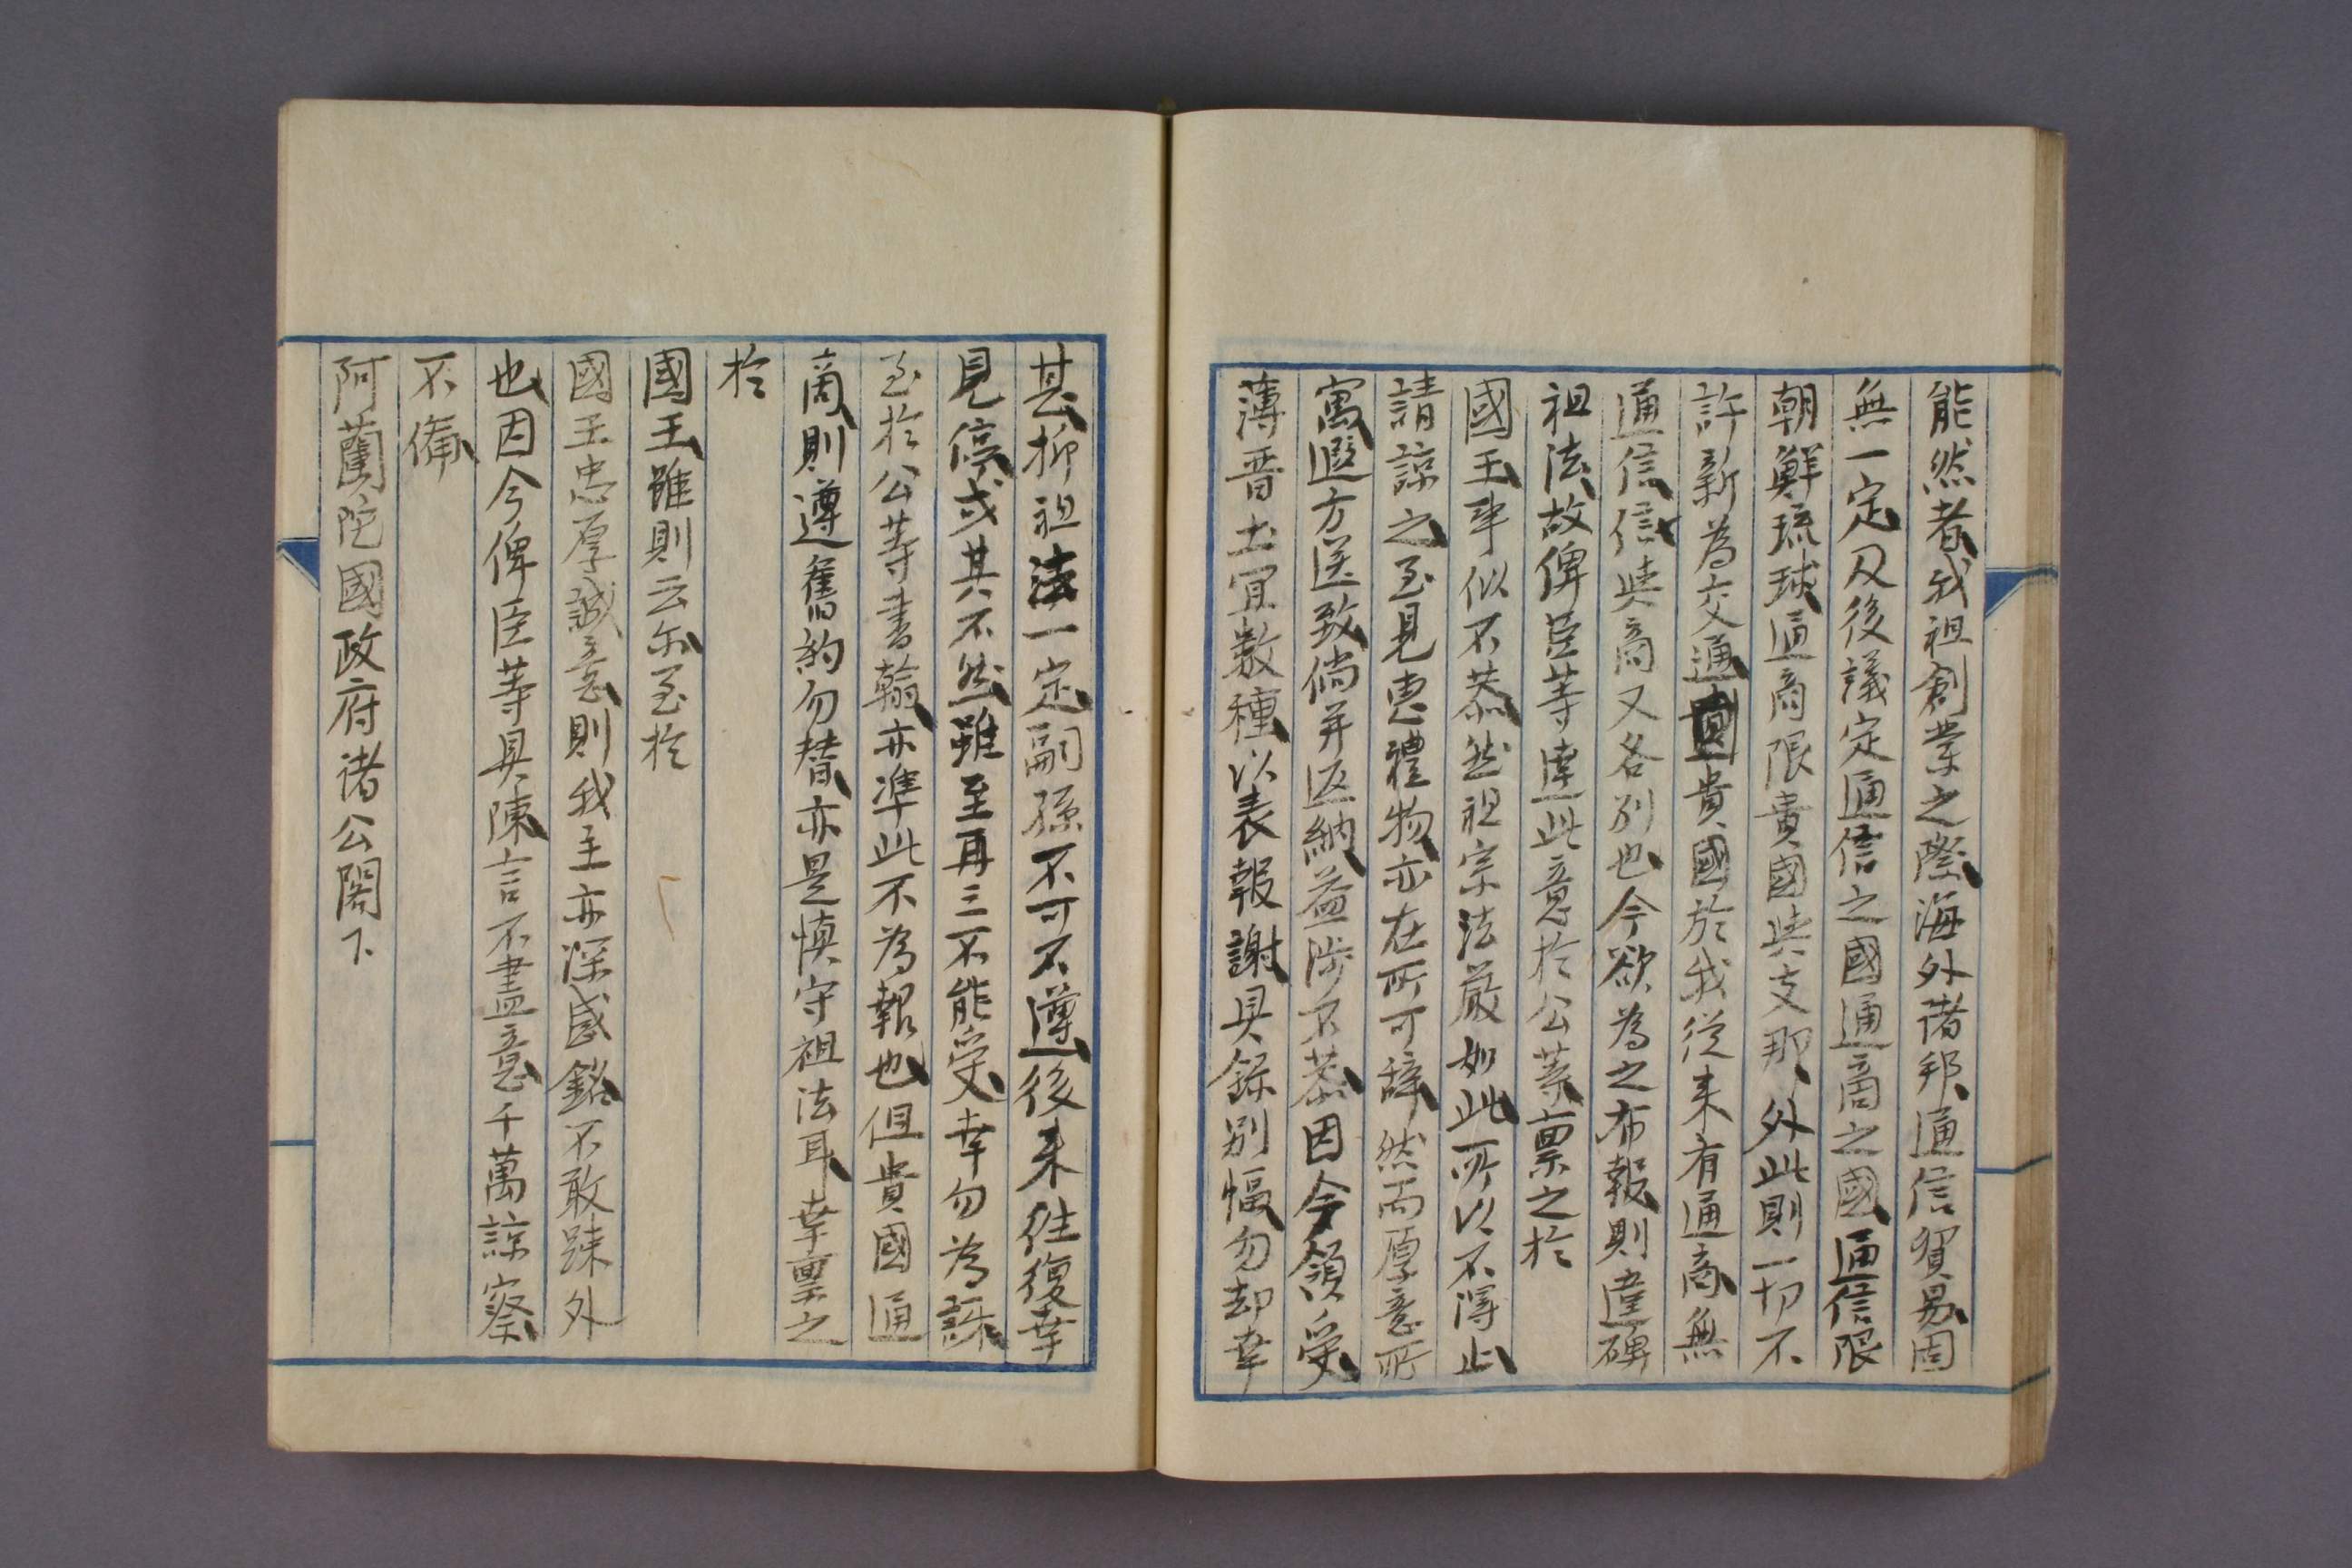 能然者我祖創業之際海外諸邦通信貿易固
無一定及後議定通信之國通商之國通信限
朝鮮琉球通商限貴國與支那外此則一切不
許新為交通貴國於我從来有通商無
通信信與商又各別也今欲為之布報則違碍
祖法故俾臣等達此意於公等禀之於
國王事似不恭然祖宗法嚴如此所以不得止
請諒之至見惠禮物亦在所可辞然而厚意所
寓遐方送致倘并返納益涉不恭因今領受
薄晋土宜數種以表報謝具錄別幅勿却幸
甚抑祖法一定嗣孫不可不遵後来往復幸
見停或其不然雖至再三不能受幸勿為訝
至於公等書翰亦準此不為報也但貴國通
商則遵舊約勿替亦是慎守祖法耳幸禀之
於
國王雖則云尓至於
國王忠厚誠意則我主亦深感銘不敢踈外
也因今俾臣等具陳言不盡意千萬諒察
不備
阿蘭陀國政府諸公閣下